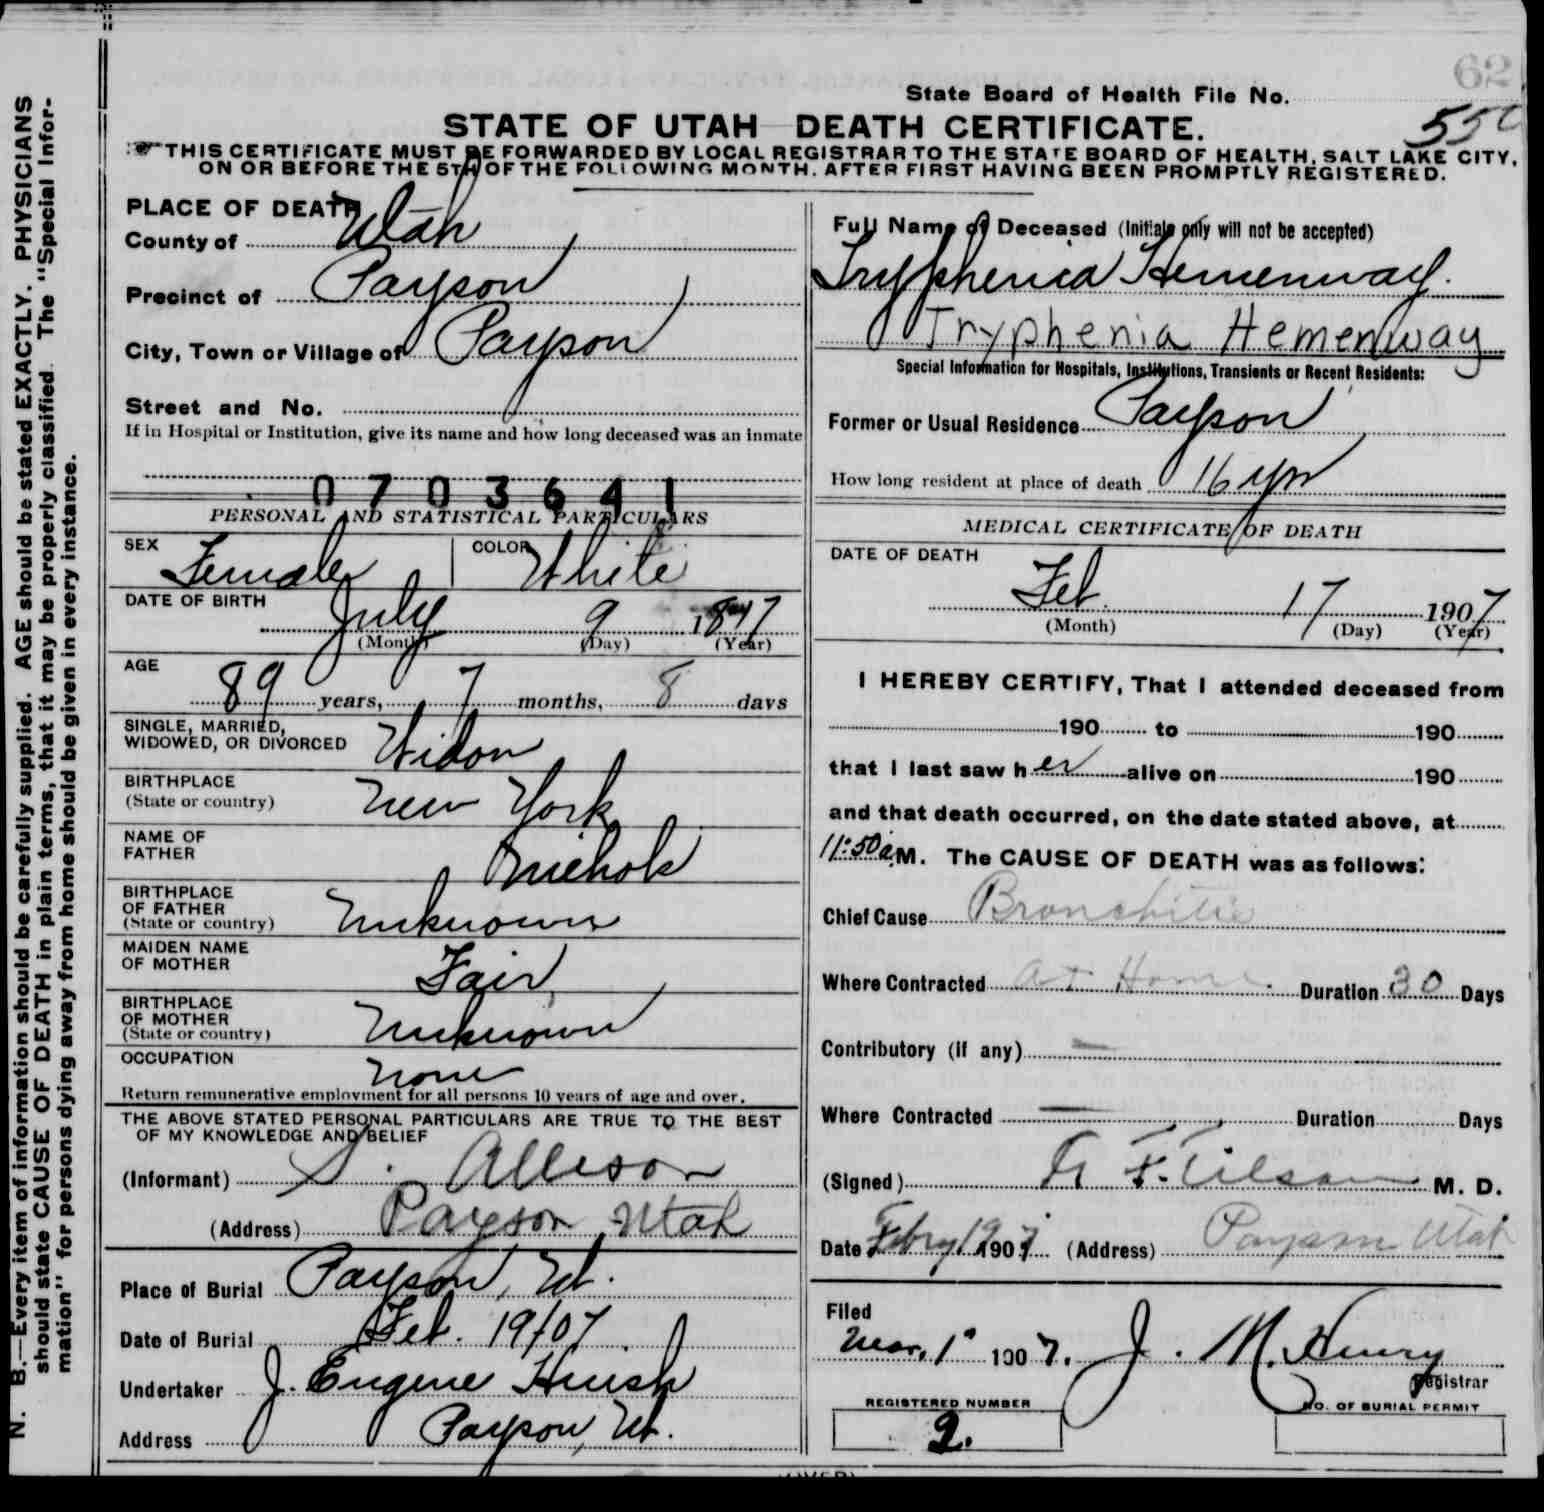 62
State Board of Health File No.
STATE OF UTAH DEATH CERTIFICATE.
THIS CERTIFICATE MUST BE FORWARDED BY LOCAL REGISTRAR TO THE STATE BOARD OF HEALTH, SALT LAKE CITY,
ON OR BEFORE THE 5TH OF THE FOLLOWING MONTH, AFTER FIRST HAVING BEEN PROMPTLY REGISTERED.
N. B.—Every item of information should be carefully supplied. AGE should be stated EXACTLY. PHYSICIANS
should state CAUSE OF DEATH in plain terms, that it may be properly classified. The "Special Infor-
mation" for persons dying away from home should be given in every instance.
PLACE OF DEATH
County of Utah
Precinct of Payson
City, Town or Village of Payson
Street and No.
If in Hospital or Institution, give its name and how long deceased was an inmate
0703641
PERSONAL AND STATISTICAL PARTICULARS
SEX Female COLOR White
DATE OF BIRTH July 9
(Month) (Day) (Year)
AGE
89 years, 7 months, 8 days
SINGLE, MARRIED,
WIDOWED, OR DIVORCED Widow
BIRTHPLACE
(State or country) New York
NAME OF
FATHER Nichols
BIRTHPLACE
OF FATHER
(State or country) Unknown
MAIDEN NAME
OF MOTHER Fair
BIRTHPLACE
OF MOTHER
(State or country) Unknown
OCCUPATION None
Return remunerative employment for all persons 10 years of age and over.
THE ABOVE STATED PERSONAL PARTICULARS ARE TRUE TO THE BEST
OF MY KNOWLEDGE AND BELIEF
(Informant) S. Allison
(Address) Payson Utah
Place of Burial Payson, Ut.
Date of Burial Feb. 19/07
Undertaker J. Eugene Huish
Address Payson, Ut.
Full Name of Deceased (Initials only will not be accepted)
Tryphenia Hemenway.
Tryphenia Hemenway
Special Information for Hospitals, Institutions, Transients or Recent Residents:
Former or Usual Residence Payson
How long resident at place of death 16 yrs
MEDICAL CERTIFICATE OF DEATH
DATE OF DEATH
Feb. 17 1907
(Month) (Day) (Year)
I HEREBY CERTIFY, That I attended deceased from
190 to 190
that I last saw her alive on 190
and that death occurred, on the date stated above, at
11:50 a.M. The CAUSE OF DEATH was as follows:
Chief Cause Bronchitis
Where Contracted At Home. Duration 30 Days
Contributory (if any) —
Where Contracted — Duration Days
(Signed) F. Tilson M. D.
Date Febry 19 1907 (Address) Payson Utah
Filed
Mar. 1" 1907. J. M. Henry
Registrar
REGISTERED NUMBER
2.
NO. OF BURIAL PERMIT
(OVER)